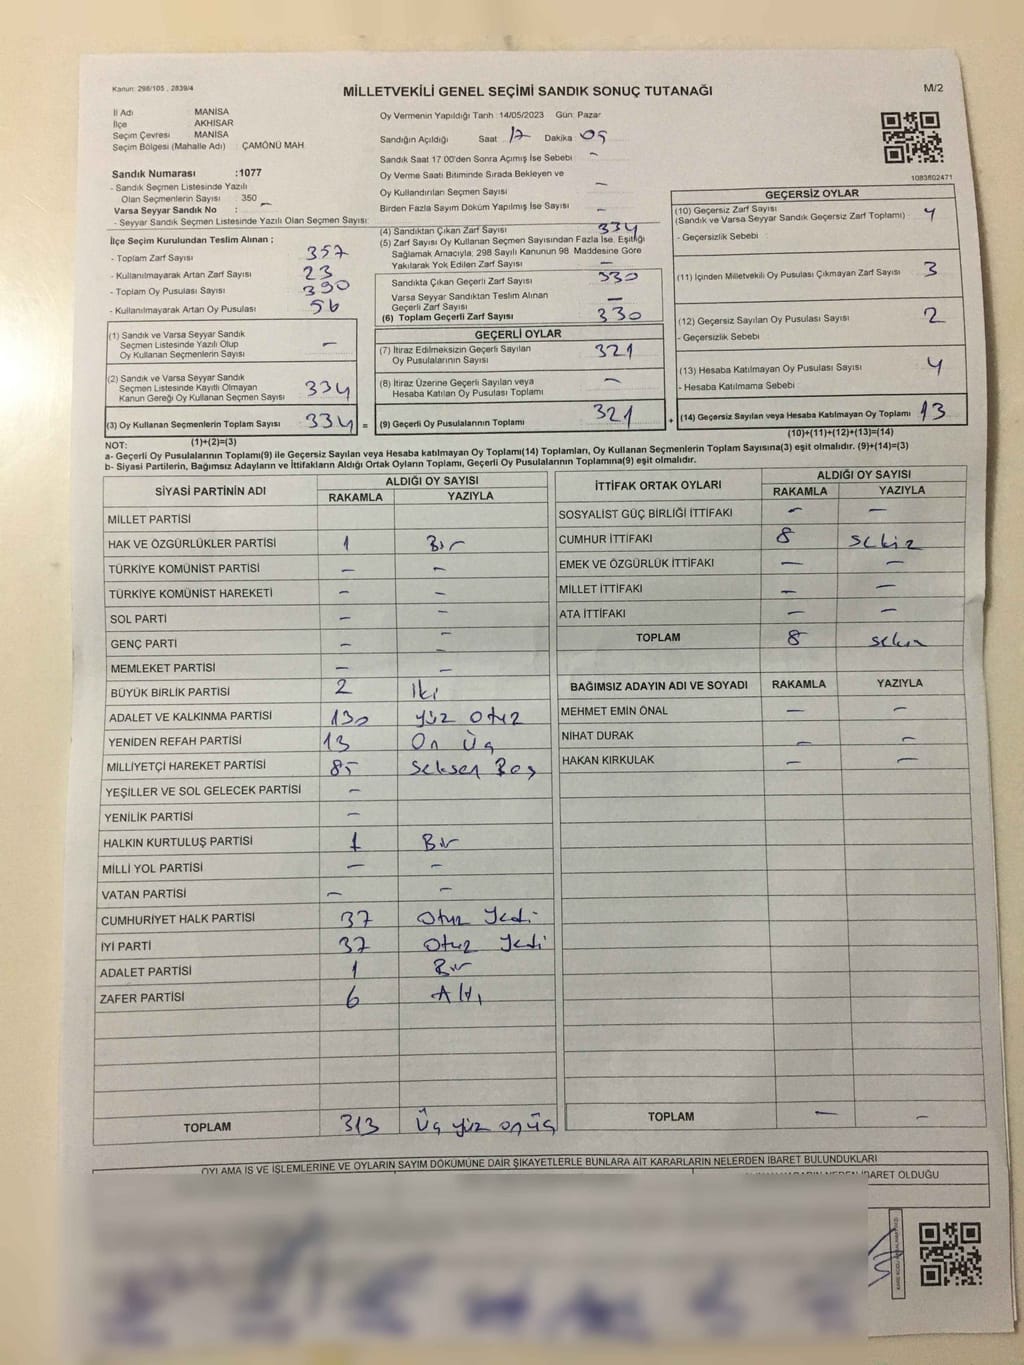 Kanun: 298/105 , 2839/4
MİLLETVEKİLİ GENEL SEÇİMİ SANDIK SONUÇ TUTANAĞI
M/2
İl Adı : MANİSA
İlçe : AKHİSAR
Seçim Çevresi : MANİSA
Seçim Bölgesi (Mahalle Adı) : ÇAMÖNÜ MAH.
Sandık Numarası :1077
- Sandık Seçmen Listesinde Yazılı
Olan Seçmenlerin Sayısı : 350 –
Varsa Seyyar Sandık No :
- Seyyar Sandık Seçmen Listesinde Yazılı Olan Seçmen Sayısı:
Oy Vermenin Yapıldığı Tarih :14/05/2023 Gün: Pazar
Sandığın Açıldığı Saat 17 Dakika 05
Sandık Saat 17:00'den Sonra Açımış İse Sebebi –
Oy Verme Saati Bitiminde Sırada Bekleyen ve
Oy Kullandırılan Seçmen Sayısı –
Birden Fazla Sayım Döküm Yapılmış İse Sayısı –
1083602471
İlçe Seçim Kurulundan Teslim Alınan ;
- Toplam Zarf Sayısı : 357
- Kullanılmayarak Artan Zarf Sayısı : 23
- Toplam Oy Pusulası Sayısı : 390
- Kullanılmayarak Artan Oy Pusulası : 56
(1) Sandık ve Varsa Seyyar Sandık
Seçmen Listesinde Yazılı Olup
Oy Kullanan Seçmenlerin Sayısı –
(2) Sandık ve Varsa Seyyar Sandık
Seçmen Listesinde Kayıtlı Olmayan
Kanun Gereği Oy Kullanan Seçmen Sayısı 334
(3) Oy Kullanan Seçmenlerin Toplam Sayısı 334 =
(1)+(2)=(3)
(4) Sandıktan Çıkan Zarf Sayısı : 334
(5) Zarf Sayısı Oy Kullanan Seçmen Sayısından Fazla İse, Eşitliği
Sağlamak Amacıyla, 298 Sayılı Kanunun 98. Maddesine Göre
Yakılarak Yok Edilen Zarf Sayısı : –
Sandıkta Çıkan Geçerli Zarf Sayısı : 330
Varsa Seyyar Sandıktan Teslim Alınan
Geçerli Zarf Sayısı : –
(6) Toplam Geçerli Zarf Sayısı : 330
GEÇERLİ OYLAR
(7) İtiraz Edilmeksizin Geçerli Sayılan
Oy Pusulalarının Sayısı : 321
(8) İtiraz Üzerine Geçerli Sayılan veya
Hesaba Katılan Oy Pusulası Toplamı –
(9) Geçerli Oy Pusulalarının Toplamı 321 +
GEÇERSİZ OYLAR
(10) Geçersiz Zarf Sayısı
(Sandık ve Varsa Seyyar Sandık Geçersiz Zarf Toplamı) : 4
- Geçersizlik Sebebi :
(11) İçinden Milletvekili Oy Pusulası Çıkmayan Zarf Sayısı : 3
(12) Geçersiz Sayılan Oy Pusulası Sayısı : 2
- Geçersizlik Sebebi
(13) Hesaba Katılmayan Oy Pusulası Sayısı : 4
- Hesaba Katılmama Sebebi
(14) Geçersiz Sayılan veya Hesaba Katılmayan Oy Toplamı 13
(10)+(11)+(12)+(13)=(14)
NOT:
a- Geçerli Oy Pusulalarının Toplamı(9) ile Geçersiz Sayılan veya Hesaba katılmayan Oy Toplamı(14) Toplamları, Oy Kullanan Seçmenlerin Toplam Sayısına(3) eşit olmalıdır. (9)+(14)=(3)
b- Siyasi Partilerin, Bağımsız Adayların ve İttifakların Aldığı Ortak Oyların Toplamı, Geçerli Oy Pusulalarının Toplamına(9) eşit olmalıdır.
SİYASİ PARTİNİN ADI
ALDIĞI OY SAYISI
RAKAMLA YAZIYLA
MİLLET PARTİSİ
HAK VE ÖZGÜRLÜKLER PARTİSİ 1 Bir
TÜRKİYE KOMÜNİST PARTİSİ – –
TÜRKİYE KOMÜNİST HAREKETİ – –
SOL PARTİ – –
GENÇ PARTİ – –
MEMLEKET PARTİSİ – –
BÜYÜK BİRLİK PARTİSİ 2 İki
ADALET VE KALKINMA PARTİSİ 130 yüz otuz
YENİDEN REFAH PARTİSİ 13 On üç
MİLLİYETÇİ HAREKET PARTİSİ 85 Seksen Beş
YEŞİLLER VE SOL GELECEK PARTİSİ –
YENİLİK PARTİSİ –
HALKIN KURTULUŞ PARTİSİ 1 Bir
MİLLİ YOL PARTİSİ – –
VATAN PARTİSİ – –
CUMHURİYET HALK PARTİSİ 37 Otuz Yedi
İYİ PARTİ 37 Otuz Yedi
ADALET PARTİSİ 1 Bir
ZAFER PARTİSİ 6 Altı
TOPLAM 313 Üç yüz onüç
İTTİFAK ORTAK OYLARI
ALDIĞI OY SAYISI
RAKAMLA YAZIYLA
SOSYALİST GÜÇ BİRLİĞİ İTTİFAKI – –
CUMHUR İTTİFAKI 8 Sekiz
EMEK VE ÖZGÜRLÜK İTTİFAKI – –
MİLLET İTTİFAKI – –
ATA İTTİFAKI – –
TOPLAM 8 sekiz
BAĞIMSIZ ADAYIN ADI VE SOYADI RAKAMLA YAZIYLA
MEHMET EMİN ÖNAL – –
NİHAT DURAK – –
HAKAN KIRKULAK – –
TOPLAM – –
OYLAMA İŞ VE İŞLEMLERİNE VE OYLARIN SAYIM DÖKÜMÜNE DAİR ŞİKAYETLERLE BUNLARA AİT KARARLARIN NELERDEN İBARET BULUNDUKLARI
İBARET OLDUĞU